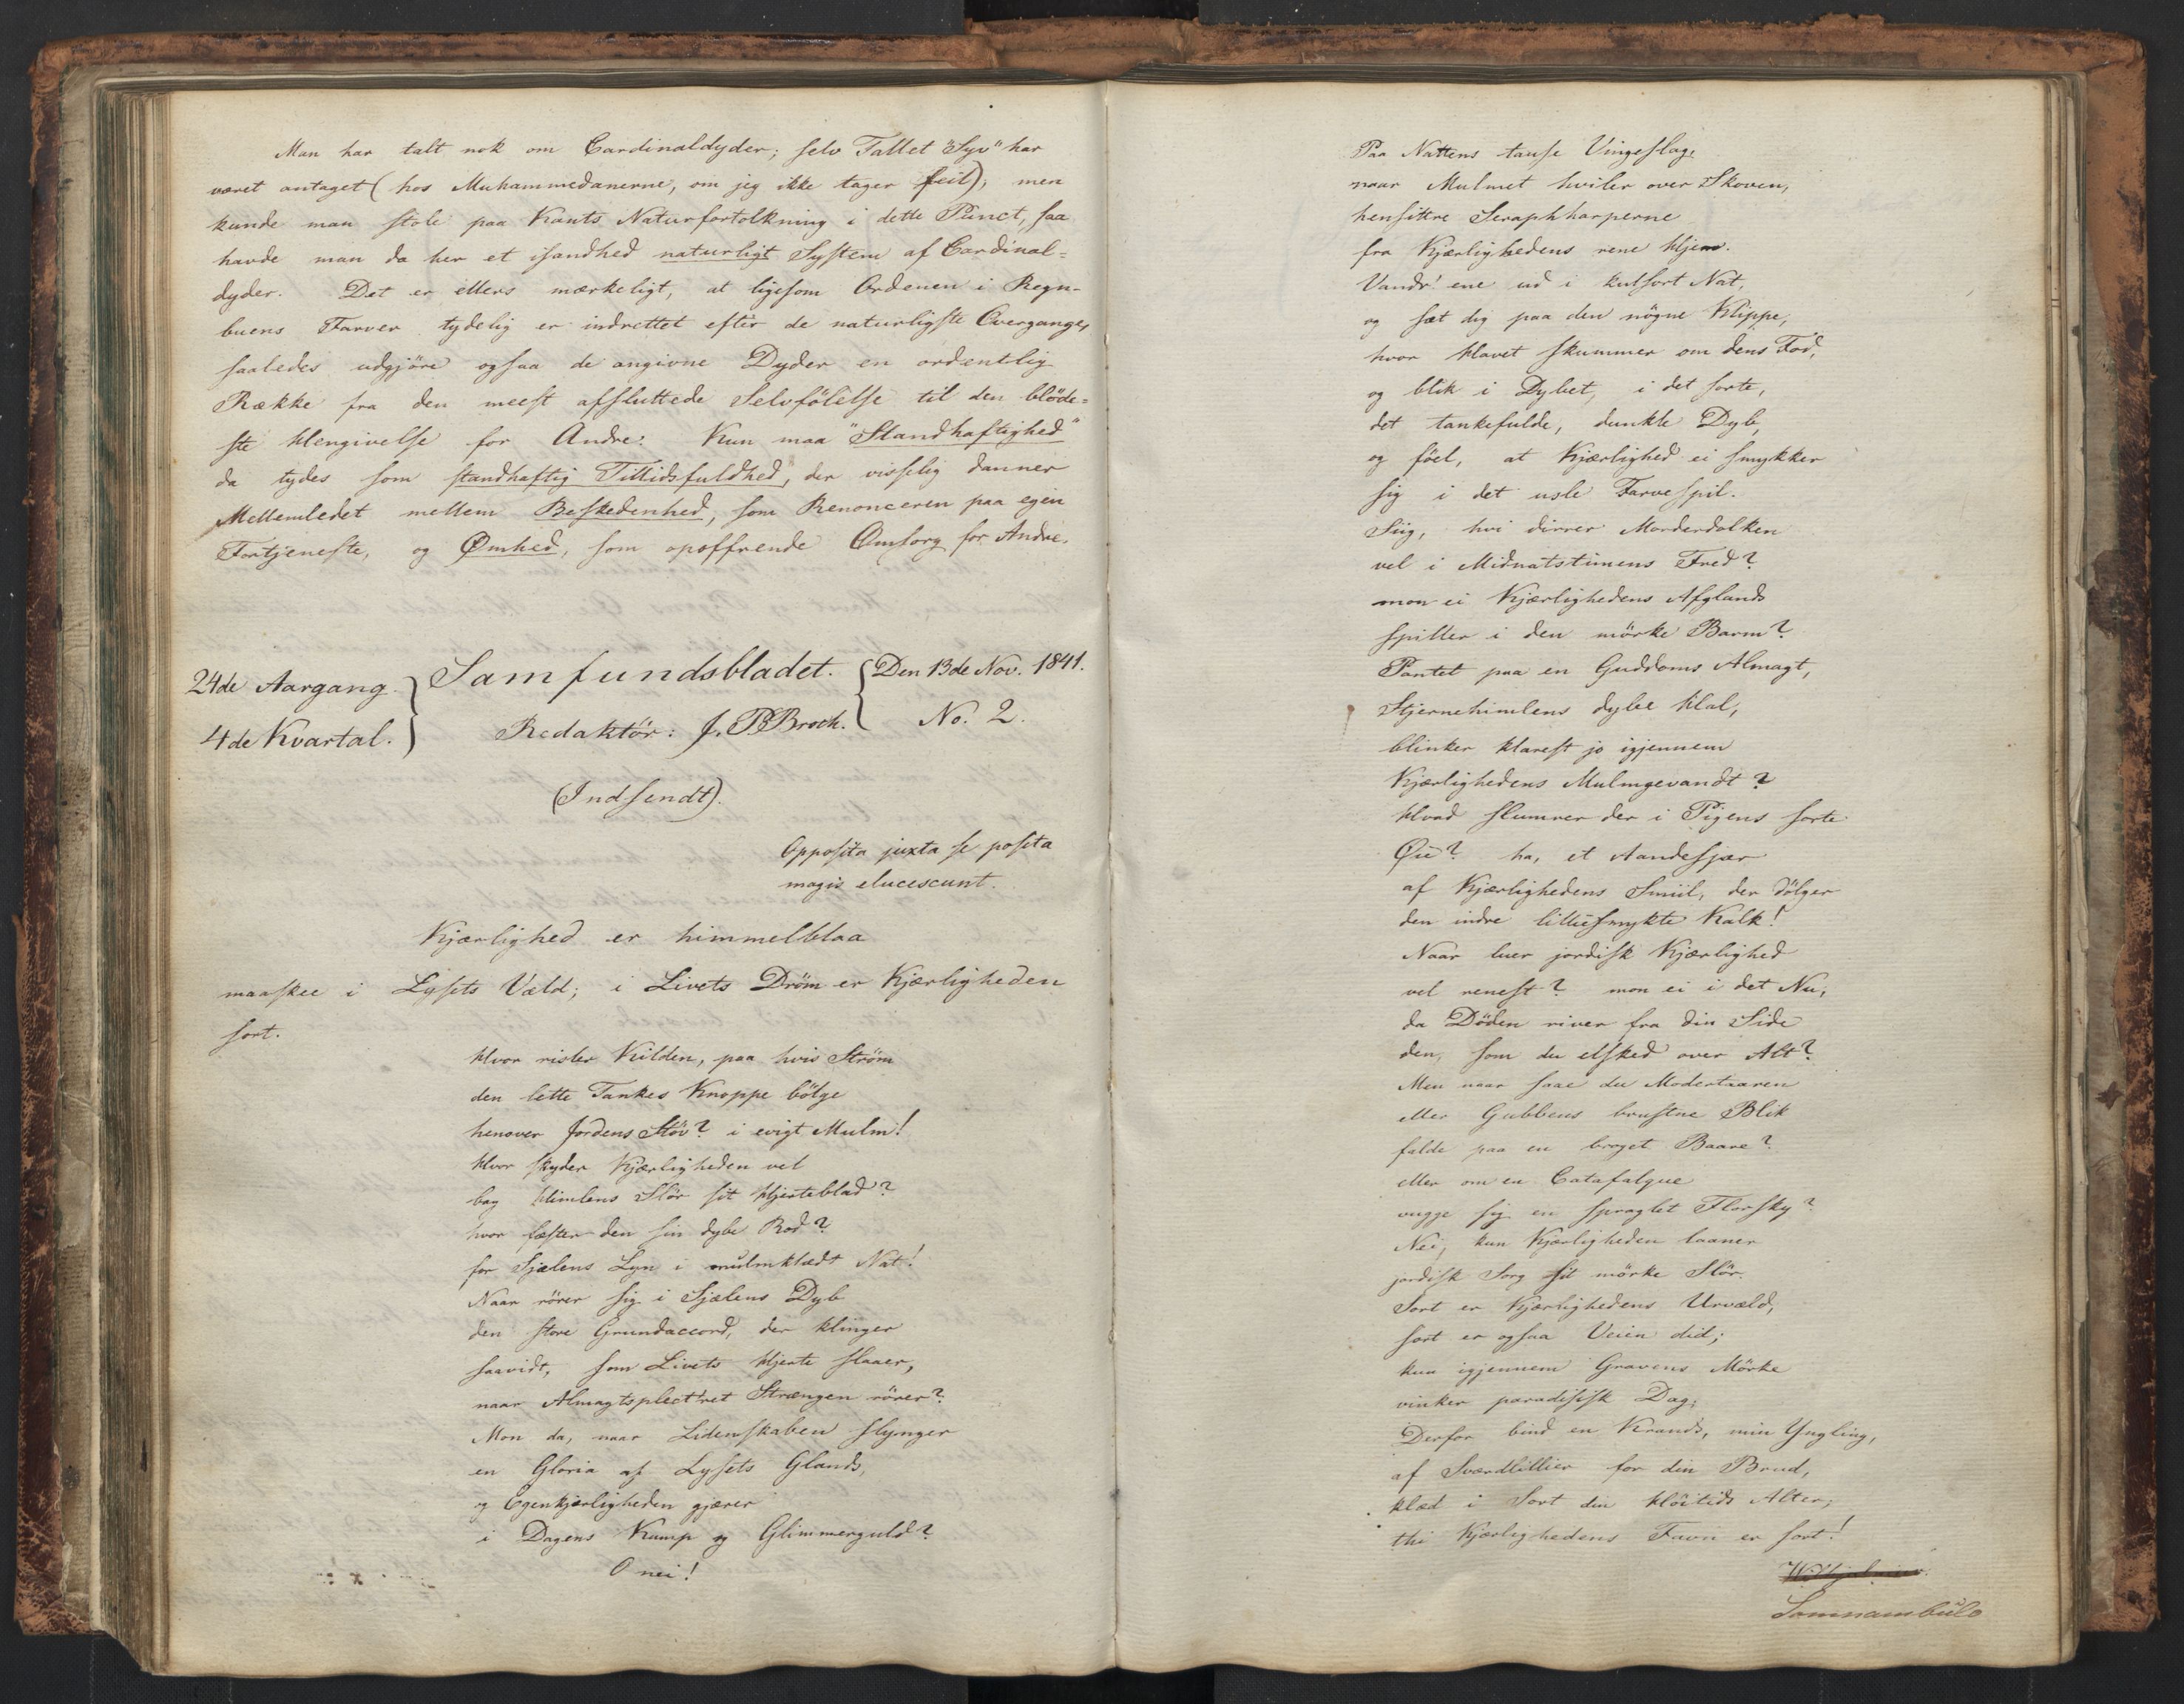 Man har talt nok om Cardinaldyder; selv Tallet "Syv" har
været antaget (hos Muhammedanerne, om jeg ikke tager feil); men
kunde man stole paa Kants Naturfortolkning i dette Punct, saa
havde man da her et isandhed naturligt System af Cardinal=
dyder. Det er ellers mærkeligt, at ligesom Ordenen i Regn-
buens Farver tydelig er indrettet efter de naturligste Overgange,
saaledes udgjöre ogsaa de angivne Dyder en ordentlig
Række fra den meest afsluttede Selvfölelse til den blöde=
ste Hengivelse for Andre. Kun maa "Standhaftighed"
da tydes som standhaftig Tillidsfuldhed, der visselig danner
Mellemledet mellem Beskedenhed, som Renonceren paa egen
Fortjeneste, og Ømhed, som opoffrende Omsorg for Andre.
24de Aargang. Samfundsbladet. Den 13de Nov. 1841.
4de Kvartal. Redaktör: J. P Broch. No. 2.
(Indsendt).
Opposita juxta se posita
magis elucescunt.
Kjærlighed er himmelblaa
maaskee i Lysets Væld; i Livets Dröm er Kjærligheden
sort.
Hvor risler Kilden, paa hvis Ström
den lette Tankes Knoppe bölge
henover Jordens Stöv? i evigt Mulm!
Hvor skyder Kjærligheden vel
bag Himlens Slör sit Hjerteblad?
hvor fæster den sin dybe Rod?
for Sjælens Lyn i mulmklædt Nat!
Naar rörer sig i Sjælens Dyb
den store Grundaccord, der klinger
saavidt, som Livets Hjerte slaaer,
naar Almagtsplectret Strængen rörer?
Mon da, naar Lidenskaben slynger
en Gloria af Lysets Glands,
og Egenkjærligheden gjærer
i Dagens Kamp og Glimmerguld?
O nei!
Paa Nattens tause Vingeslag,
naar Mulmet hviler over Skoven,
hensittre Seraphharperne
fra Kjærlighedens rene Hjem.
Vandr' ene ud i kulsort Nat,
og sæt dig paa den nögne Klippe,
hvor Havet skummer om dens Fod,
og blik i Dybet, i det sorte,
det tankefulde, dunkle Dyb,
og föel, at Kjærlighed ei smykker
sig i det usle Farvespil.
Siig, hvi dirrer Morderdolken
vel i Midnatstimens Fred?
mon ei Kjærlighedens Afglands
spiller i den mörke Barm?
Pantet paa en Guddoms Almagt,
Stjernehimlens dybe Hal,
blinker klarest jo igjennem
Kjærlighedens Mulmgevandt?
Hvad slumrer der i Pigens sorte
Øie? ha, et Aandesjær
af Kjærlighedens Smiil, der dölger
den indre lilliesmykte Kalk!
Naar luer jordisk Kjærlighed
vel renest? mon ei i det Nu,
da Döden river fra din Side
den, som du elsked over Alt?
Men naar saae du Modertaaren
eller Gubbens brustne Blik
falde paa en broget Baare?
eller om en Catafalque
vugge sig en spraglet Florsky?
Nei, kun Kjærligheden laaner
jordisk Sorg sit mörke Slör.
Sort er Kjærlighedens Urvæld,
sort er ogsaa Veien did;
kun igjennem Gravens Mörke
vinker paradisisk Dag;
Derfor bind en Krands, min Yngling,
af Sværdlillier for din Brud,
klæd i Sort din Höitids Alter;
thi Kjærlighedens Favn er sort!
Somnambülo